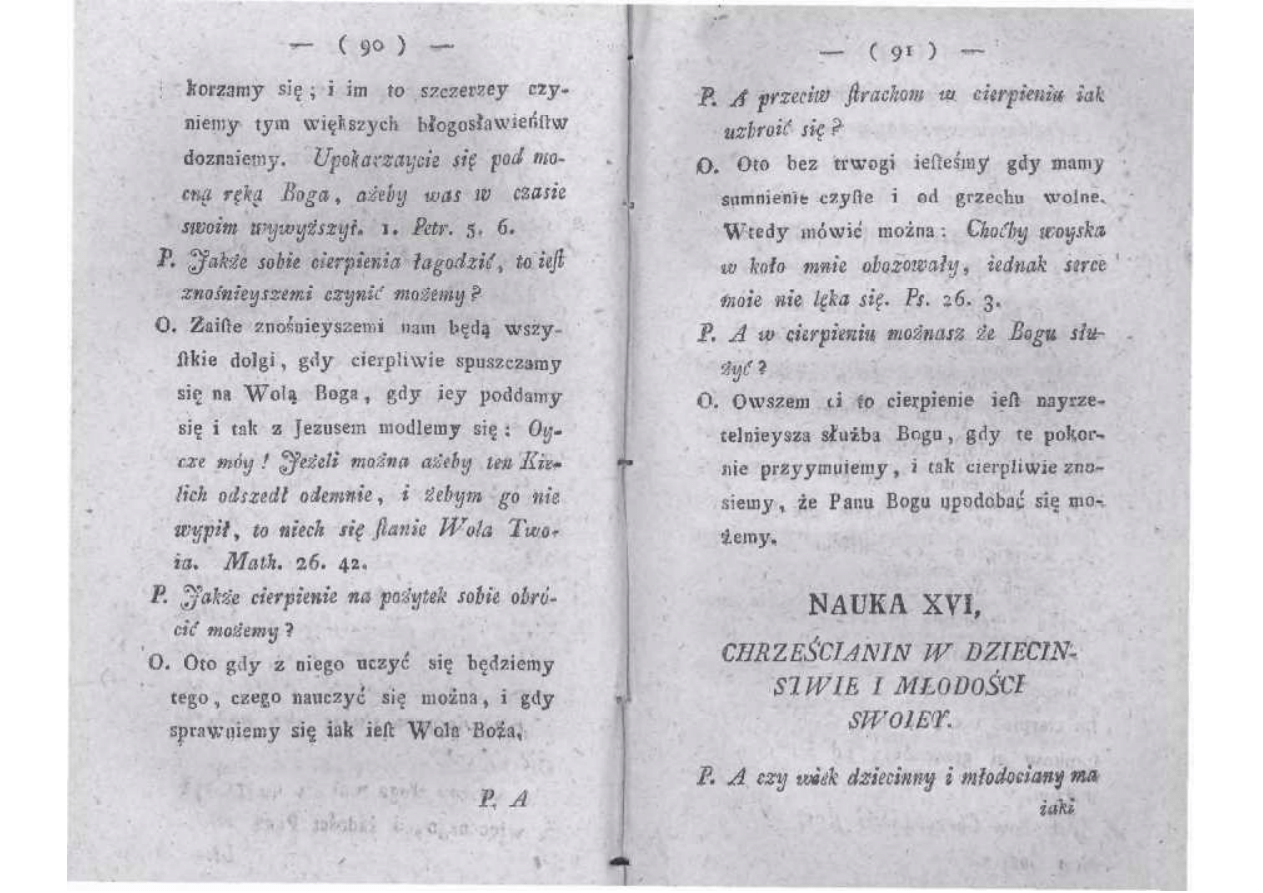 — ( 90 ) —
korzamy się ; i im to szczerzey czy-
niemy tym większych błogosławieńſtw
doznaiemy. Upokarzaycie się pod mo-
cną ręką Boga, ażeby was w czasie
swoim wywyższył. 1. Petr. 5. 6.
P. Jakże sobie cierpienia łagodzić, to ieſt
znośnieyszemi czynić możemy ?
O. Zaiſte znośnieyszemi nam będą wszy-
ſtkie dolgi, gdy cierpliwie spuszczamy
się na Wolą Boga, gdy iey poddamy
się i tak z Jezusem modlemy się : Oy-
cze móy ! Jeżeli można ażeby ten Kie-
lich odszedł odemnie, i żebym go nie
wypił, to niech się ſtanie Wola Two-
ia. Math. 26. 42.
P. Jakże cierpienie na pożytek sobie obró-
cić możemy ?
O. Oto gdy z niego uczyć się będziemy
tego, czego nauczyć się można, i gdy
sprawuiemy się iak ieſt Wola Boża,
P. A
— ( 91 ) —
P. A przeciw ſtrachom w cierpieniu iak
uzbroić się ?
O. Oto bez trwogi ieſteśmy gdy mamy
sumnienie czyſte i od grzechu wolne.
Wtedy mówić można : Choćby woyska
w koło mnie obozowały, iednak serce
moie nie lęka się. Ps. 26. 3.
P. A w cierpieniu możnasz że Bogu słu-
żyć ?
O. Owszem ci to cierpienie ieſt nayrze-
telnieysza służba Bogu, gdy te pokor-
nie przyymuiemy, i tak cierpliwie zno-
siemy, że Panu Bogu upodobać się mo-
żemy.
NAUKA XVI,
CHRZEŚCIANIN W DZIECIN-
STWIE I MŁODOŚCI
SWOIEY.
P. A czy wiek dziecinny i młodociany ma
iaki